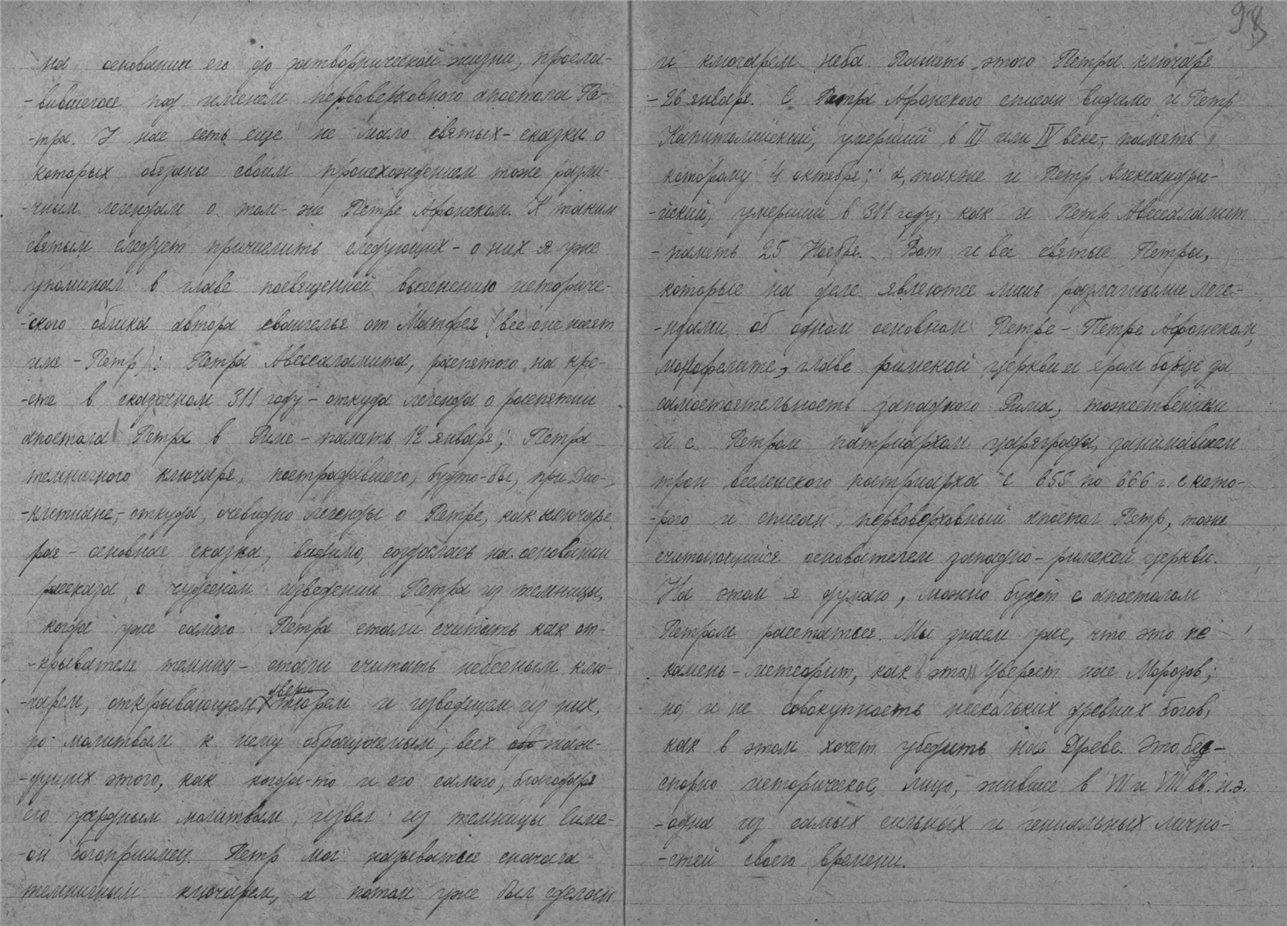 на основании его до затворнической жизни, просла-
-вившегося под именем первоверховного апостола Пе-
-тра. У нас есть еще не мало святых - сказки о
которых обязаны своим происхождением тоже разли-
-чным легендам о том-же Петре Афонском. К таким
святым следует причислить следующих - о них я уже
упоминал в главе посвященной выяснению историче-
-ского облика автора евангелья от Матфея (все они носят
имя - Петр): Петра Авессаламита, распятого на кре-
-сте в сказочном 311 году - откуда легенда о распятии
апостола Петра в Риме - память 12 января; Петра
темничного ключаря, пострадавшего, будто-бы, при Дио-
-клетиане, - откуда, очевидно легенды о Петре, как ключаре
рая - основная сказка, видимо, создалась на основании
рассказа о чудесном изведении Петра из темницы,
когда уже самого Петра стали считать как от-
-крывателя темниц - стали считать небесным клю-
-чарем, открывающем двери тюрем и изводящем из них,
по молитвам к нему обращенным, всех жаж-
-дущих этого, как когда-то и его самого, благодаря
его усердным молитвам, извел из темницы Симе-
-он богоприимец. Петр мог называться сначала
темничным ключарем, а потом уже был сделан
98
и ключарем неба. Память этого Петра ключаря
- 26 января. С Петра Афонского списан видимо и Петр
Капитолийский, умерший в III или IV веке, память
которому 4 октября; а, также и Петр Александри-
-йский, умерший в 311 году, как и Петр Авессаламит
- память 25 Ноября. Вот и все святые Петры,
которые на деле являются лишь различными леге-
-ндами об одном основном Петре - Петре Афонском,
монофелите, главе римской церкви и яром борце за
самостоятельность западного Рима, тожественным
и с Петром патриархом Царяграда, занимавшем
трон вселенского патриарха с 655 по 666 г. с кото-
-рого и списан, первоверховный апостол Петр, тоже
считающийся основателем западно-римской церкви.
На этом я думаю, можно будет с апостолом
Петром расстаться. Мы знаем уже, что это не
камень - метеорит, как это уверяет нас Морозов;
но и не совокупность нескольких древних богов,
как в этом хочет убедить нас Древс. Это, бес-
спорно историческое, лицо, жившее в VII и VIII вв. н.э.
- одна из самых сильных и гениальных лично-
-стей своего времени.